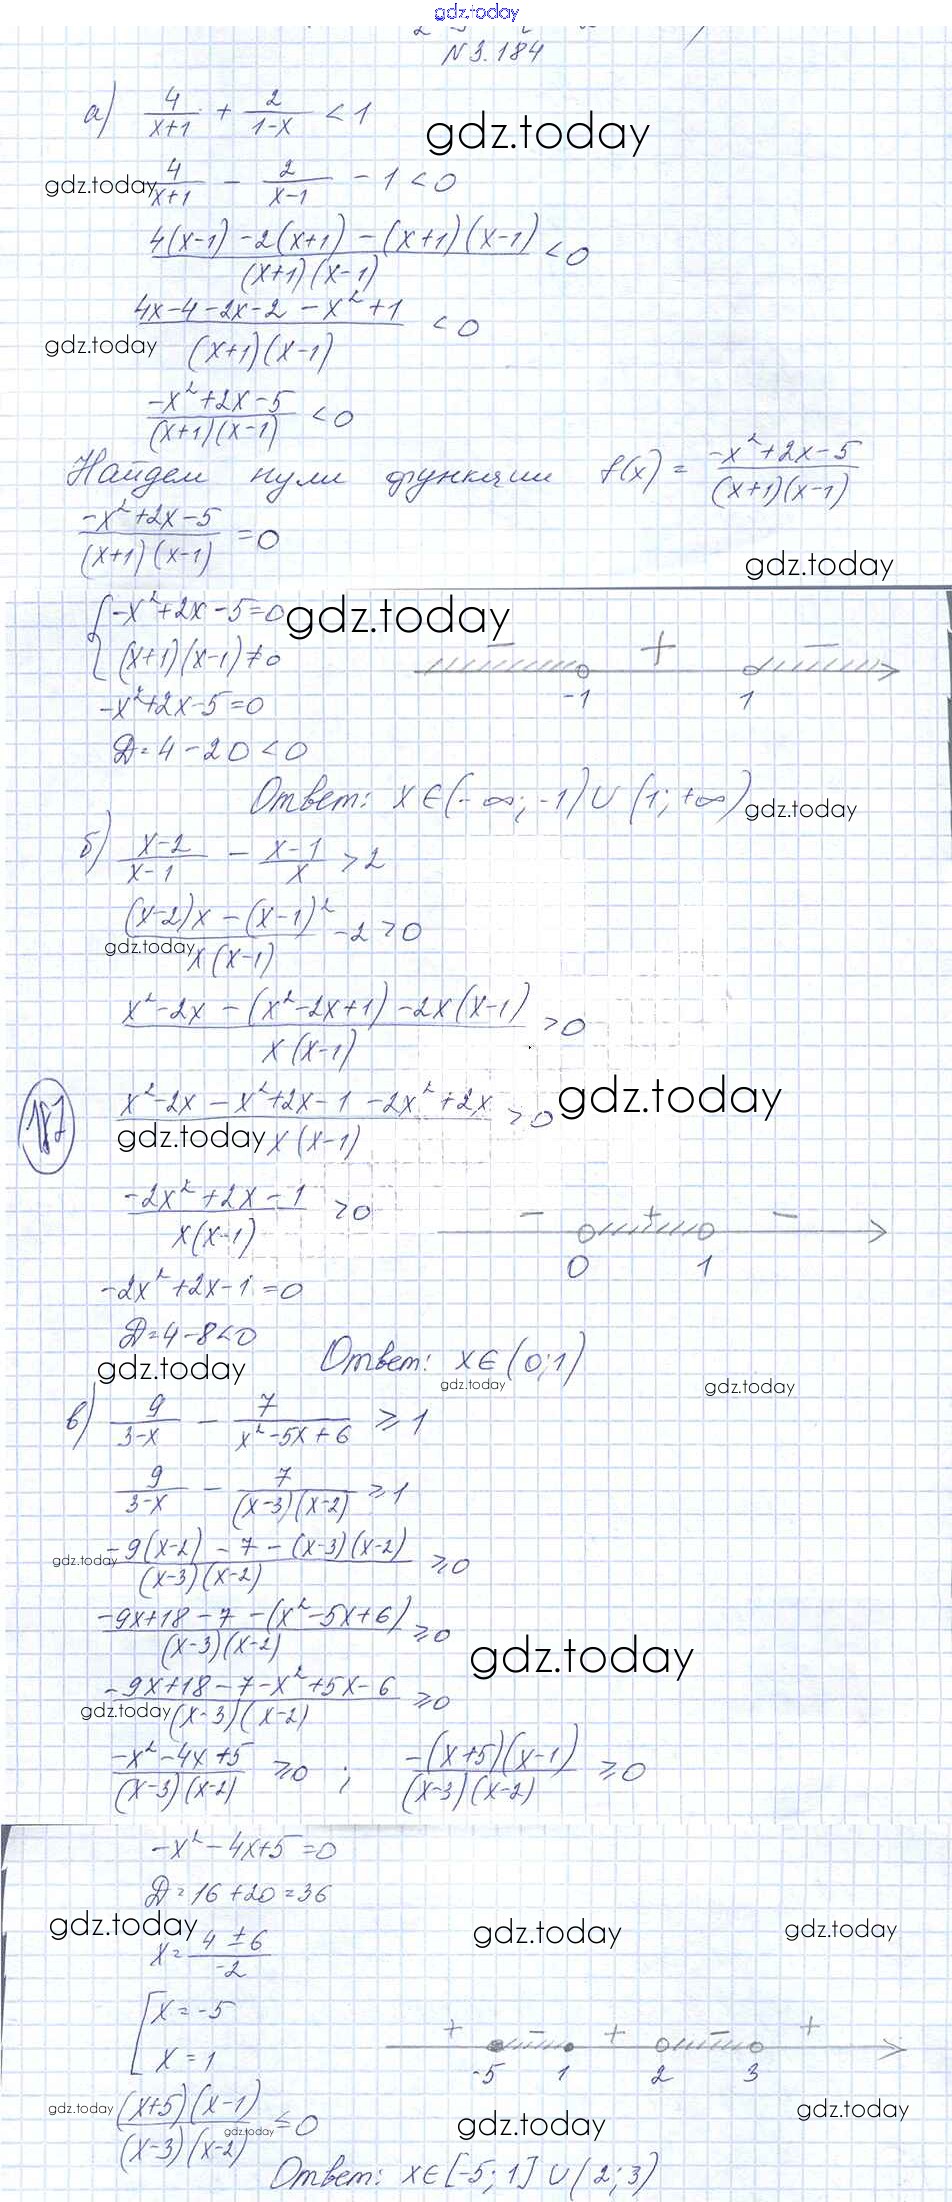 gdz.today
N 3.184
а) 4/(x+1) + 2/(1-x) < 1
gdz.today
gdz.today
4/(x+1) - 2/(x-1) - 1 < 0
(4(x-1) - 2(x+1) - (x+1)(x-1))/((x+1)(x-1)) < 0
(4x-4-2x-2-x²+1)/((x+1)(x-1)) < 0
gdz.today
(-x²+2x-5)/((x+1)(x-1)) < 0
Найдем нули функции f(x) = (-x²+2x-5)/((x+1)(x-1))
(-x²+2x-5)/((x+1)(x-1)) = 0
gdz.today
{ -x²+2x-5=0
gdz.today
(x+1)(x-1)≠0
- + -
-1 1
-x²+2x-5=0
Д=4-20<0
Ответ: x∈(-∞;-1)∪(1;+∞)
gdz.today
б) (x-2)/(x-1) - (x-1)/x > 2
((x-2)x - (x-1)²)/(x(x-1)) - 2 > 0
gdz.today
(x²-2x - (x²-2x+1) - 2x(x-1))/(x(x-1)) > 0
187
(x²-2x-x²+2x-1-2x²+2x)/(x(x-1)) > 0
gdz.today
gdz.today
(-2x²+2x-1)/(x(x-1)) > 0
- + -
0 1
-2x²+2x-1=0
Д=4-8<0
gdz.today
Ответ: x∈(0;1)
gdz.today
gdz.today
в) 9/(3-x) - 7/(x²-5x+6) ≥ 1
9/(3-x) - 7/((x-3)(x-2)) ≥ 1
(-9(x-2) - 7 - (x-3)(x-2))/((x-3)(x-2)) ≥ 0
gdz.today
(-9x+18-7-(x²-5x+6))/((x-3)(x-2)) ≥ 0
gdz.today
(-9x+18-7-x²+5x-6)/((x-3)(x-2)) ≥ 0
gdz.today
(-x²-4x+5)/((x-3)(x-2)) ≥ 0 ; (-(x+5)(x-1))/((x-3)(x-2)) ≥ 0
-x²-4x+5=0
Д=16+20=36
gdz.today
gdz.today
gdz.today
x=(4±6)/(-2)
[ x=-5
x=1
+ - + - +
-5 1 2 3
((x+5)(x-1))/((x-3)(x-2)) ≤ 0
gdz.today
gdz.today
gdz.today
gdz.today
Ответ: x∈[-5;1]∪(2;3)